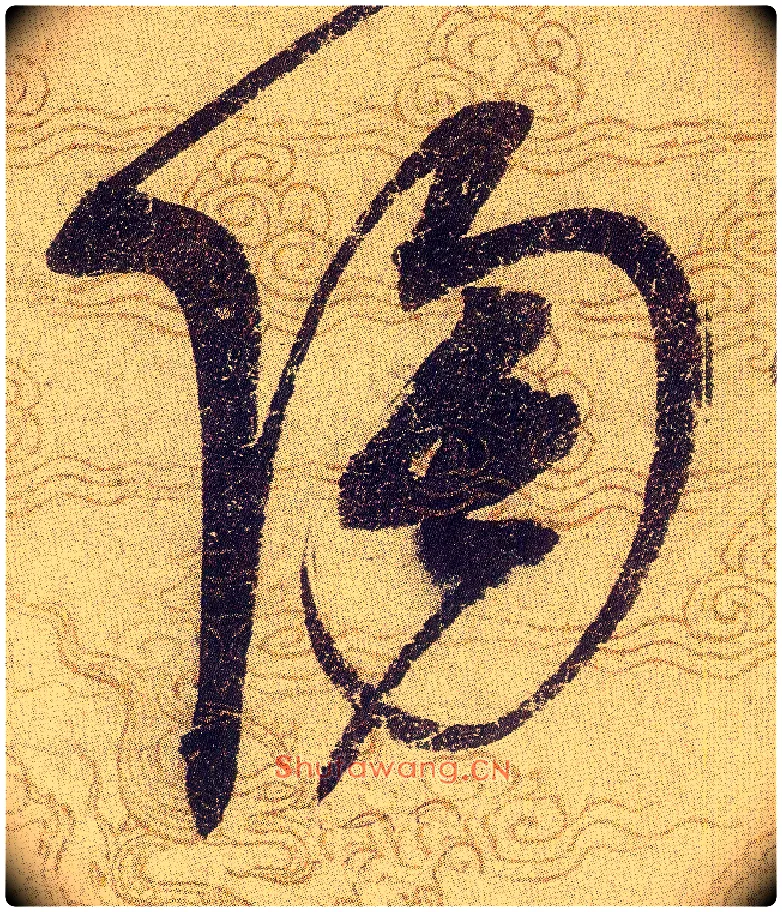 陶
Shufawang.CN